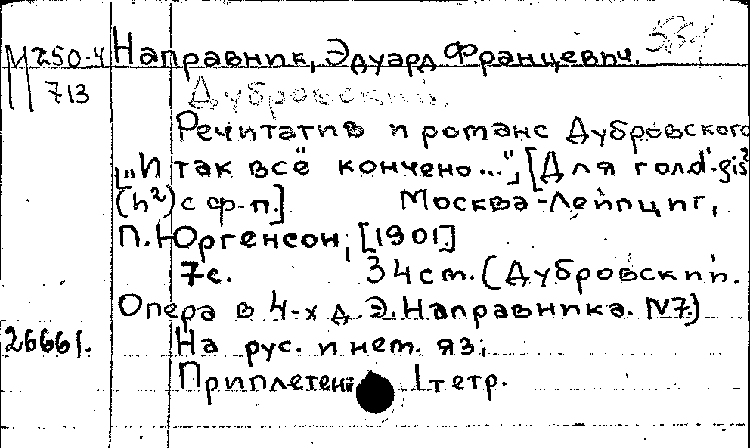 М 250-4 Направник, Эдуард Францевич.
713 Дубровский.
Речитатив и романс Дубровского
„И так всё кончено...", [Для гол. d'-gis²
(h²) с ф-п.] Москва-Лейпциг,
П. Юргенсон, [1901]
7с. 34 см. (Дубровский.
Опера в 4-х д. Э. Направника. N7.)
26661. На рус. и нем. яз.
Приплетен 1 тетр.